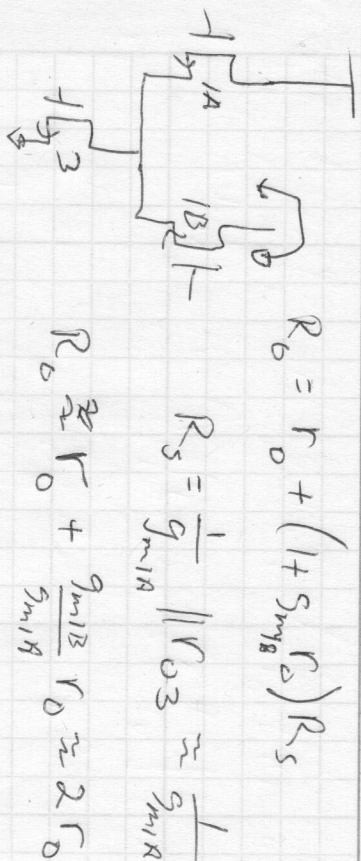 1A
1B
3
R₀ = r₀ + (1 + gm1B r₀) Rs
Rs = 1/gm1A || r₀3 ≈ 1/gm1A
R₀ ≅ r₀ + gm1B/gm1A r₀ ≈ 2 r₀